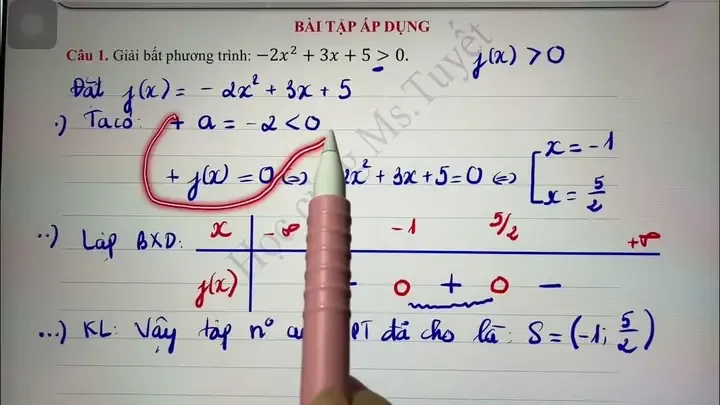 BÀI TẬP ÁP DỤNG
Câu 1. Giải bất phương trình: −2x² + 3x + 5 > 0. f(x) > 0
Đặt f(x) = − 2x² + 3x + 5
.) Ta có: + a = − 2 < 0
+ f(x) = 0 ⇔ 2x² + 3x + 5 = 0 ⇔ [ x = −1
x = 5/2
..) Lập BXD: x −∞ −1 5/2 +∞
f(x) − 0 + 0 −
...) KL: Vậy tập n° PT đã cho là: S = (−1; 5/2)
Học Ms. Tuyết